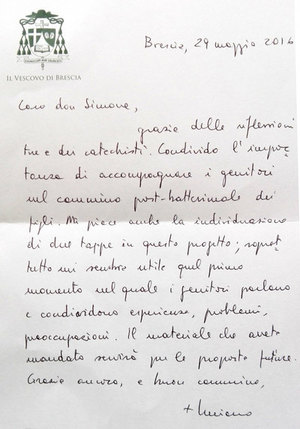 IL VESCOVO DI BRESCIA
Brescia, 29 maggio 2016
Caro don Simone,
grazie delle riflessioni
tue e dei catechisti. Condivido l'impor-
tanza di accompagnare i genitori
nel cammino post-battesimale dei
figli. Mi piace anche la individuazione
di due tappe in questo progetto; soprat-
tutto mi sembra utile quel primo
momento nel quale i genitori parlano
e condividono esperienze, problemi,
preoccupazioni. Il materiale che avete
mandato servirà per le proposte future.
Grazie ancora, e buon cammino,
+ Luciano